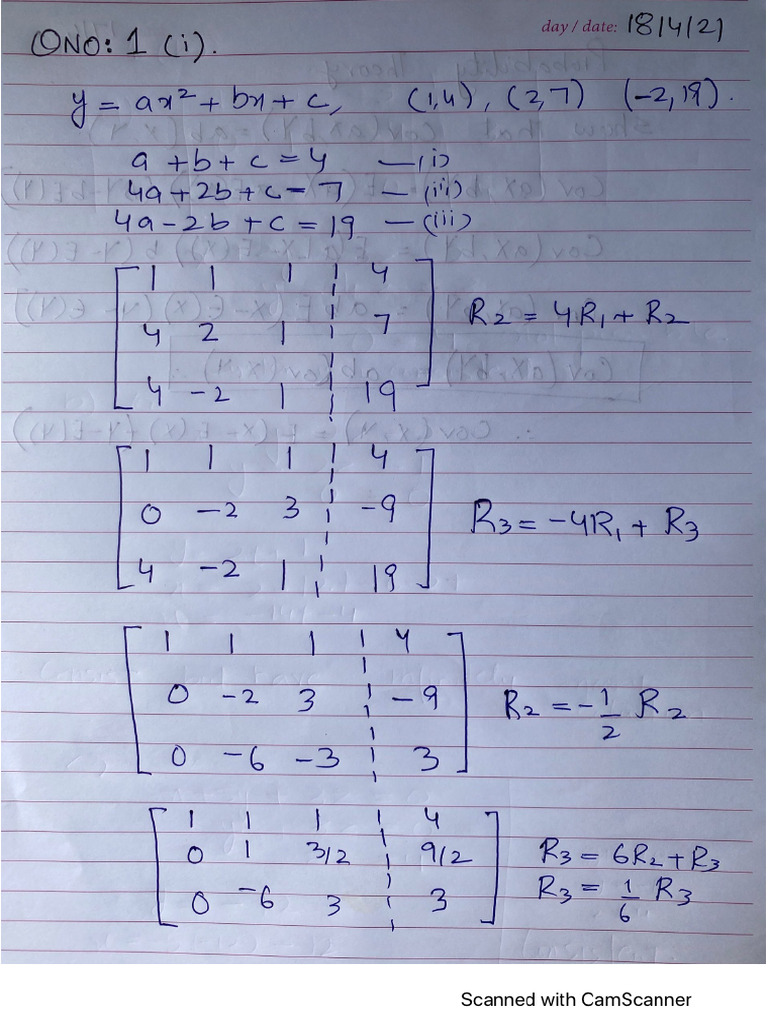 QNO: 1 (i).
day / date: 18/4/21
y = ax² + bx + c, (1,4), (2,7) (-2,19).
a + b + c = 4 — (i)
4a + 2b + c = 7 — (ii)
4a - 2b + c = 19 — (iii)
1 1 1 | 4
4 2 1 | 7 R₂ = 4R₁ + R₂
4 -2 1 | 19
1 1 1 | 4
0 -2 3 | -9 R₃ = -4R₁ + R₃
4 -2 1 | 19
1 1 1 | 4
0 -2 3 | -9 R₂ = -1/2 R₂
0 -6 -3 | 3
1 1 1 | 4
0 1 3/2 | 9/2 R₃ = 6R₂ + R₃
0 -6 3 | 3 R₃ = 1/6 R₃
Scanned with CamScanner